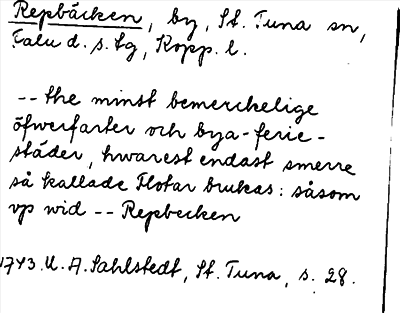 Repbäcken, by, St. Tuna sn,
Falu d. s. tg, Kopp. l.
-- the minst bemerckelige
öfwerfarter och bya-ferie-
städer, hwarest endast smerre
så kallade Flotar brukas: såsom
vp wid -- Repbecken
1743. U. A. Sahlstedt, St. Tuna, s. 28.